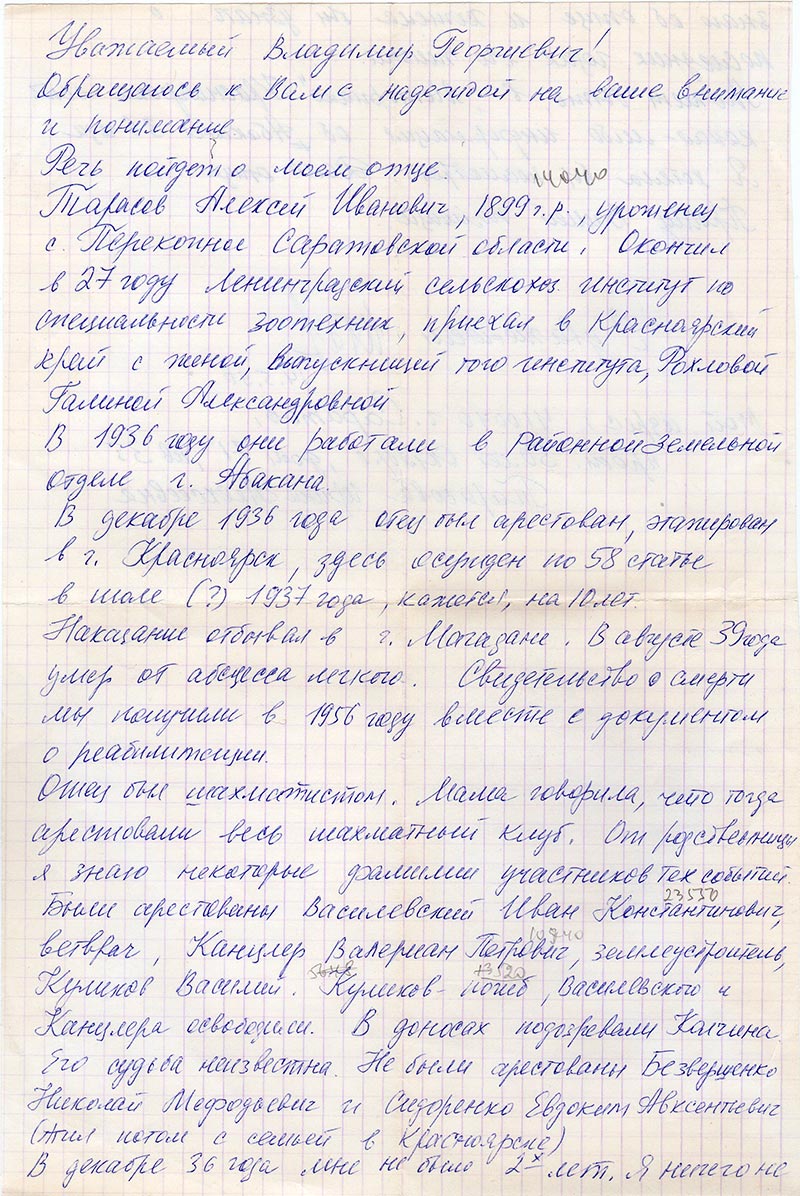 Уважаемый Владимир Георгиевич!
Обращаюсь к Вам с надеждой на ваше внимание
и понимание
Речь пойдет о моем отце.
14040
Тарасов Алексей Иванович, 1899 г.р., уроженец
с. Перекопное Саратовской области. Окончил
в 27 году Ленинградский сельскохоз. институт по
специальности зоотехник, приехал в Красноярский
край с женой, выпускницей того института, Рохловой
Галиной Александровной
В 1936 году они работали в Районной Земельной
отделе г. Абакана.
В декабре 1936 года отец был арестован, этапирован
в г. Красноярск, здесь осужден по 58 статье
в июле (?) 1937 года, кажется, на 10 лет.
Наказание отбывал в г. Магадане. В августе 39 года
умер от абсцесса легкого. Свидетельство о смерти
мы получили в 1956 году вместе с документом
о реабилитации.
Отец был шахматистом. Мама говорила, что тогда
арестовали весь шахматный клуб. От родственницы
я знаю некоторые фамилии участников тех событий.
23550
Были арестованы Василевский Иван Константинович,
10940
ветврач, Канцлер Валериан Петрович, землеустроитель,
13520
Куликов Василий. Куликов - погиб, Василевского и
Канцлера освободили. В доносах подозревали Калчина.
Его судьба неизвестна. Не были арестованы Безвершенко
Николай Мефодьевич и Сидоренко Евдоким Авксентьевич
(жил потом с семьей в Красноярске)
В декабре 36 года мне не было 2х лет. Я ничего не